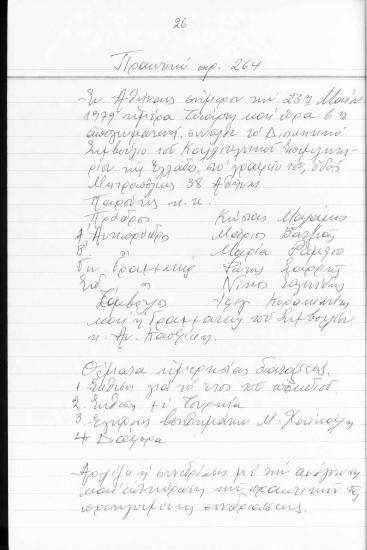 26
Πρακτικό αρ. 264
Εν Αθήναις σήμερον την 23η Μαΐου
1979 ημέρα Τετάρτη και ώρα 6η
απογευματινή, συνήλθε το Διοικητικό
Συμβούλιο του Καλλιτεχνικού Επιμελητη-
ρίου της Ελλάδος, στα γραφεία του, οδός
Μητροπόλεως 38 Αθήναι
Παρόντες κ.κ.
Πρόεδρος Κώστας
Α' Αντιπρόεδρος Μάριος
Β' " Μαρία
Γεν. Γραμματεύς Φώτης
" Νίκος
Σύμβουλο
και η Γραμματεύς του Συμβουλίου
κ. Αν.
Θέματα ημερησίας διατάξεως.
1. Έκθεση για το έτος του παιδιού
2. Έκθεση Τουρκία
3. Έγκριση βοηθημάτων Μ.
4 Διάφορα
Αρχίζει η συνεδρίασις με την ανάγνωση
και επικύρωση της πρακτικής της
προηγουμένης συνεδριάσεως.